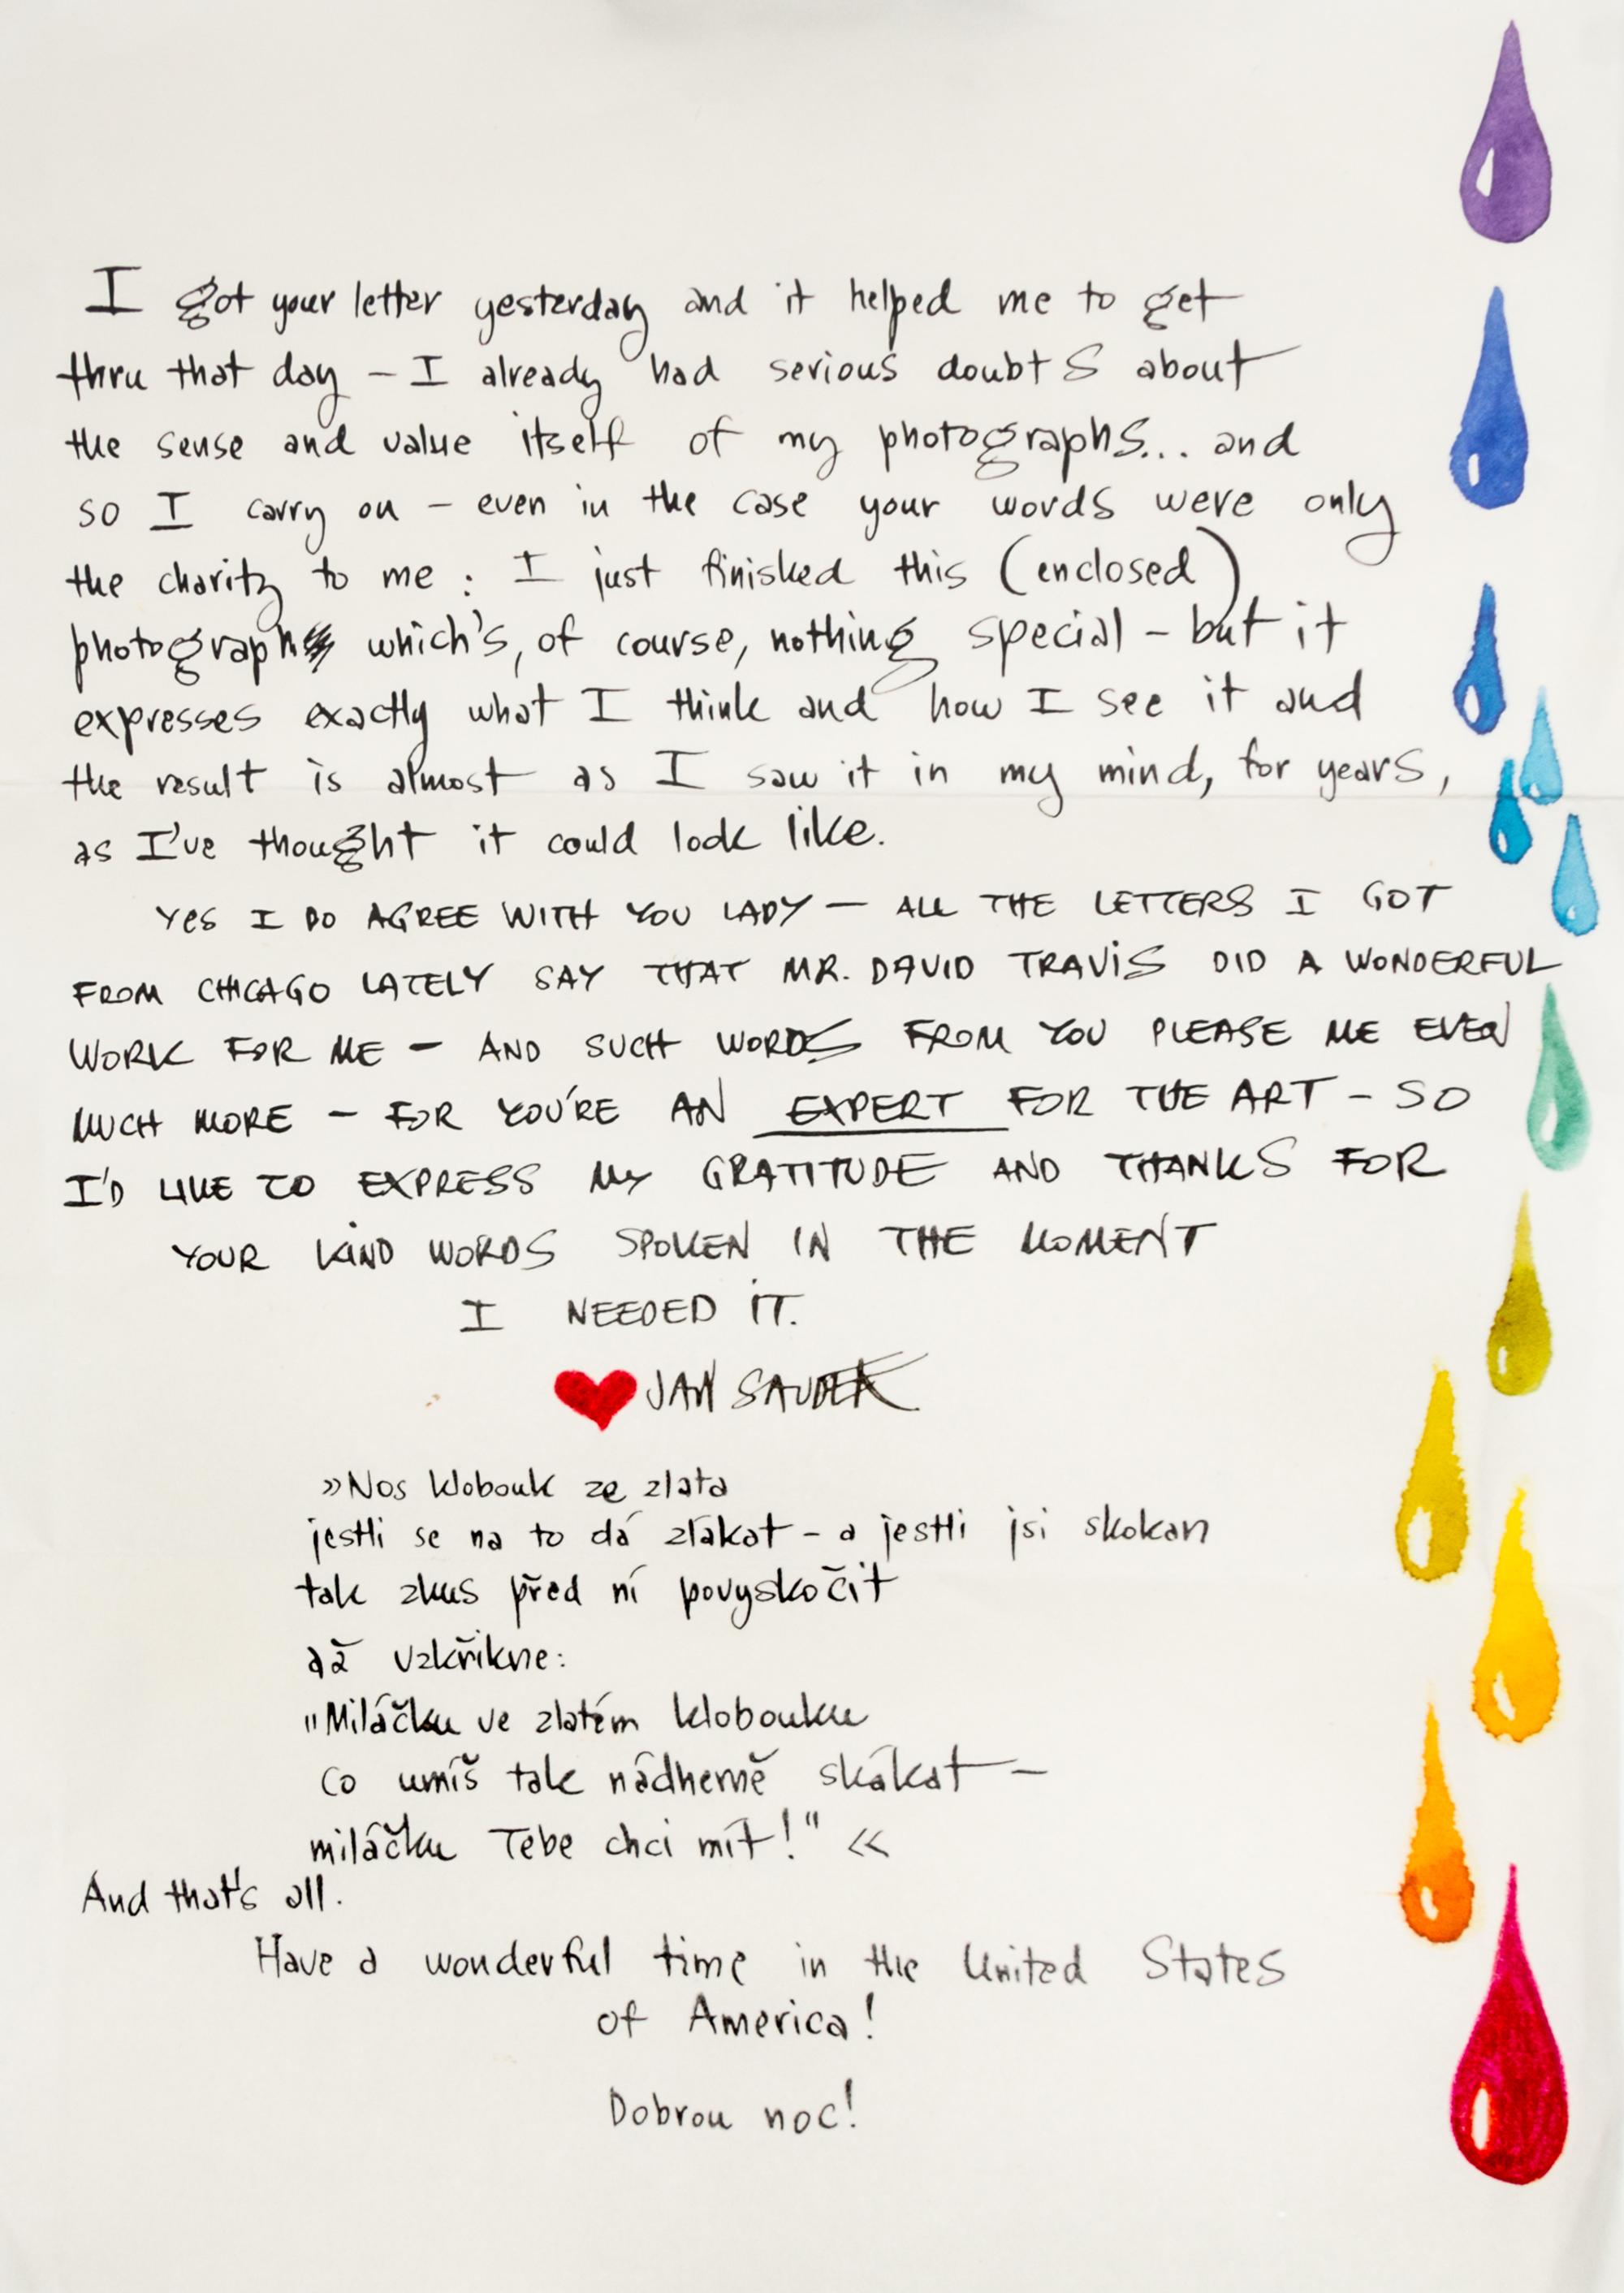 I got your letter yesterday and it helped me to get
thru that day – I already had serious doubts about
the sense and value itself of my photographs... and
so I carry on – even in the case your words were only
the charity to me : I just finished this (enclosed)
photograph which's, of course, nothing special – but it
expresses exactly what I think and how I see it and
the result is almost as I saw it in my mind, for years,
as I've thought it could look like.
YES I DO AGREE WITH YOU LADY – ALL THE LETTERS I GOT
FROM CHICAGO LATELY SAY THAT MR. DAVID TRAVIS DID A WONDERFUL
WORK FOR ME – AND SUCH WORDS FROM YOU PLEASE ME EVEN
MUCH MORE – FOR YOU'RE AN EXPERT FOR THE ART – SO
I'D LIKE TO EXPRESS MY GRATITUDE AND THANKS FOR
YOUR KIND WORDS SPOKEN IN THE MOMENT
I NEEDED IT.
♥ JAN SAUDEK
»Nos klobouk ze zlata
jestli se na to dá zlákat – a jestli jsi skokan
tak zkus před ní povyskočit
až vzkřikne:
"Miláčku ve zlatém klobouku
co umíš tak nádherně skákat –
miláčku Tebe chci mít!" «
And that's all.
Have a wonderful time in the United States
of America!
Dobrou noc!